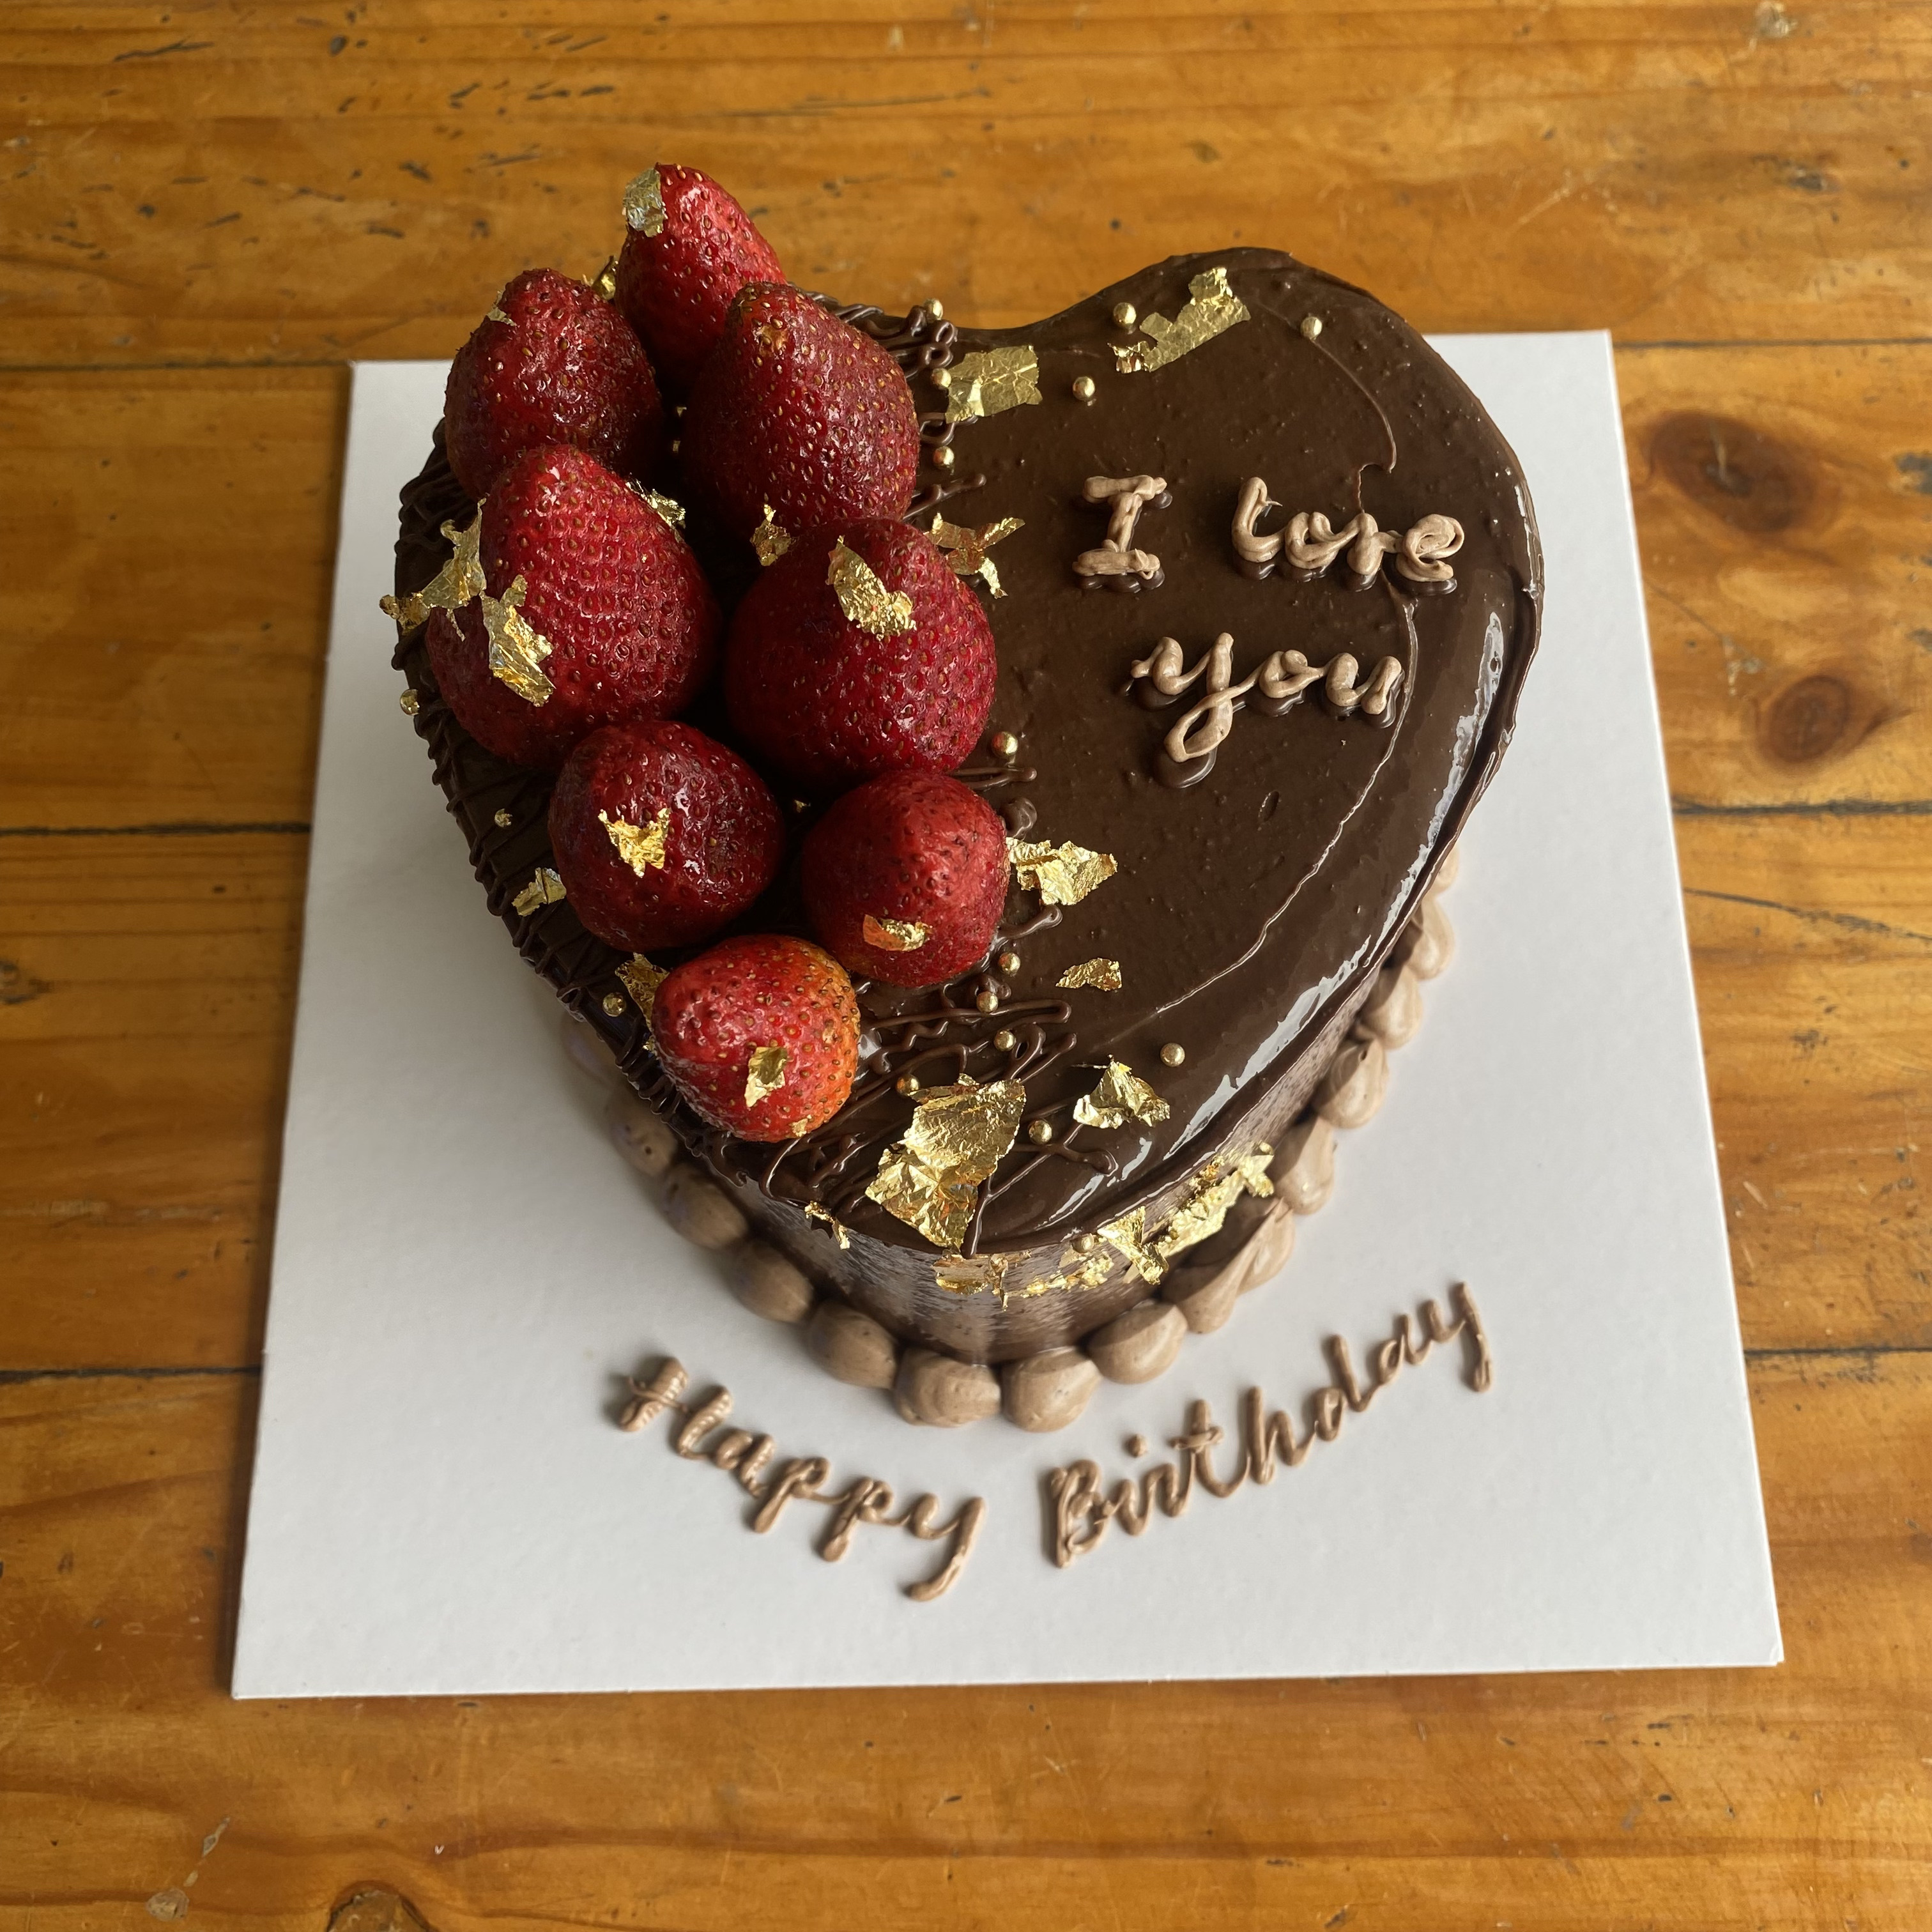 I love
you
Happy Birthday